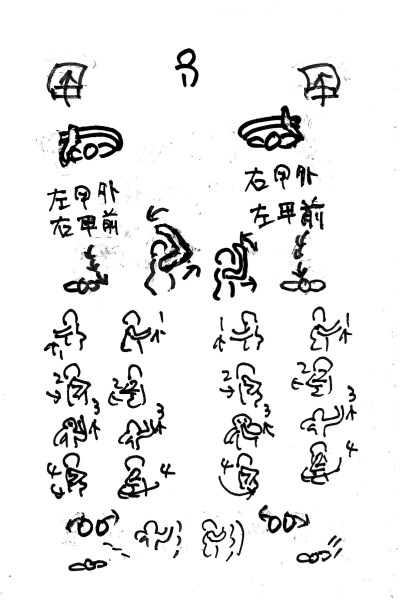 左甲外
右甲前
右甲外
左甲前
1
1
1
1
2
2
2
2
3
3
3
3
4
4
4
4